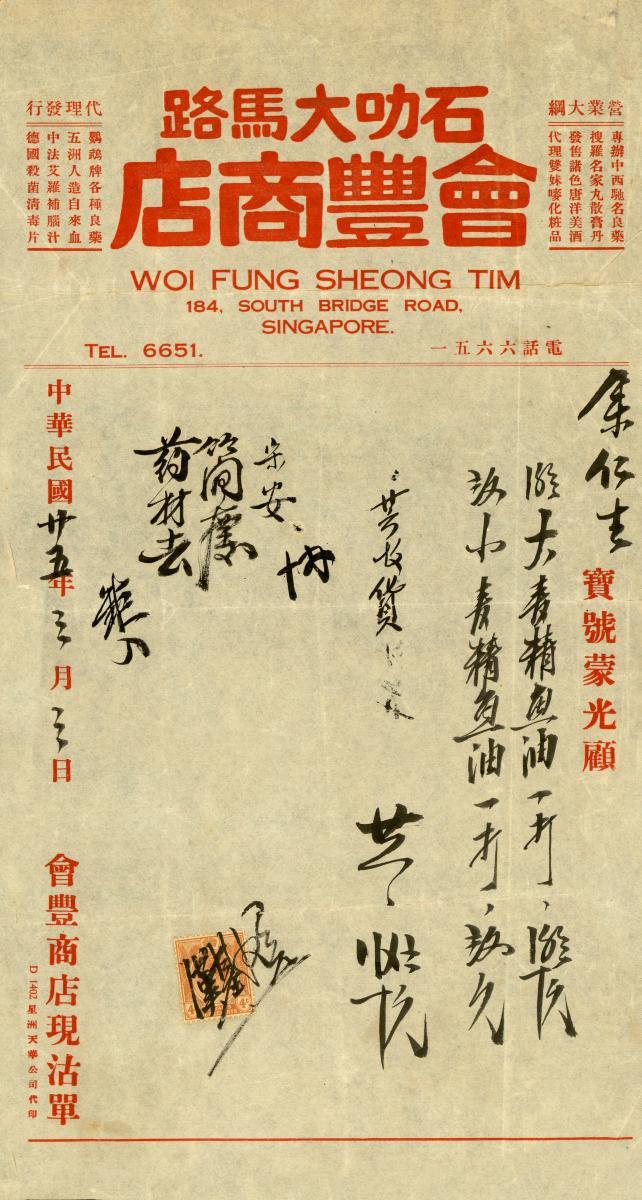 石叻大馬路
會豐商店
營業大綱
專辦中西馳名良藥
搜羅名家丸散膏丹
發售諸色唐洋美酒
代理雙妹嘜化粧品
代理發行
鸚鵡牌各種良藥
五洲人造自來血
中法艾羅補腦汁
德國殺菌清毒片
WOI FUNG SHEONG TIM
184, SOUTH BRIDGE ROAD,
SINGAPORE.
TEL. 6651.
電話六六五一
余仁生 寶號蒙光顧
大青精魚油一打
小青精魚油一打
共收貨
共
宋安
簡標
药材去
中華民國廿五年三月三日
會豐商店現沽單
D 1402 星洲天華公司代印